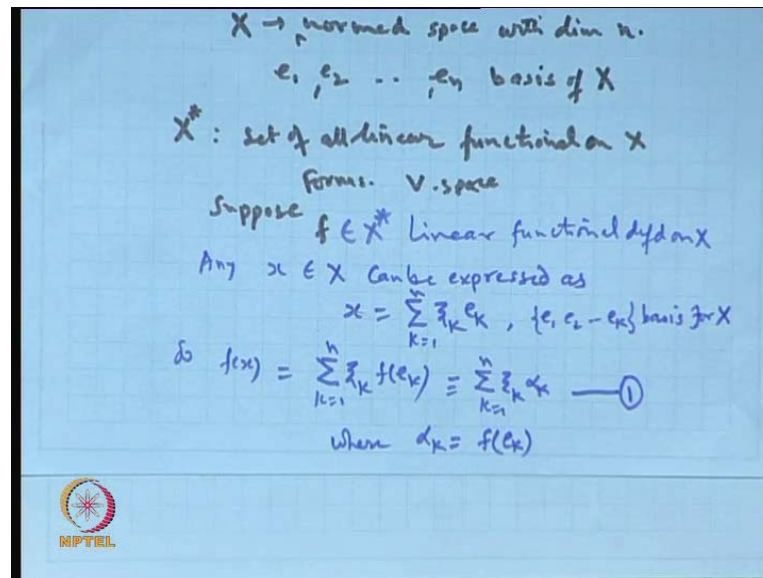 X → normed space with dim n.
e₁, e₂ .. , eₙ basis of X
X* : set of all linear functional on X
forms. V. space
Suppose f ∈ X* Linear functional defd on X
Any x ∈ X can be expressed as
x = ∑ₖ₌₁ⁿ ξₖ eₖ , {e₁ e₂ – eₖ} basis for X
So f(x) = ∑ₖ₌₁ⁿ ξₖ f(eₖ) ≡ ∑ₖ₌₁ⁿ ξₖ αₖ —— ①
where αₖ = f(eₖ)
NPTEL